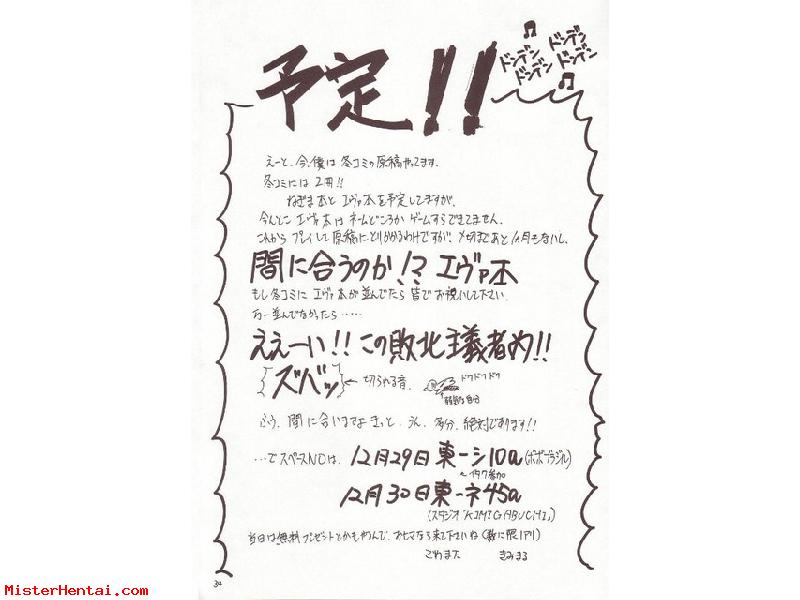 予定!!
ドンデン
ドンデン
ドンデン
ドンデン
えーと、今、僕は冬コミの原稿やってます。
冬コミには2冊!!
ねぎま本とエヴァ本を予定してますが、
今んとこエヴァ本はネームどころかゲームすらできてません。
これからプレイして原稿にとりかかるわけですが、〆切まであと1ヵ月もないし、
間に合うのか!?エヴァ本
もし冬コミにエヴァ本が並んでたら皆でお祝いして下さい。
万一並んでなかったら……
ええーい!!この敗北主義者め!!
ズバッ ←切られる音。 ドクドクドク
自分
ふう、間に合いますよきっと、うん、多分、絶対であります!!
…でスペースNOは、12月29日東ーシ10a(ポポブラジル)
〜イタク参加
12月30日東ーネ45a
(スタジオKIMIGABUCHI)
当日は無料プレゼントとかもやんで、おヒマなら来て下さいね(数に限りアリ)
でわまた きみまる
34
MisterHentai.com